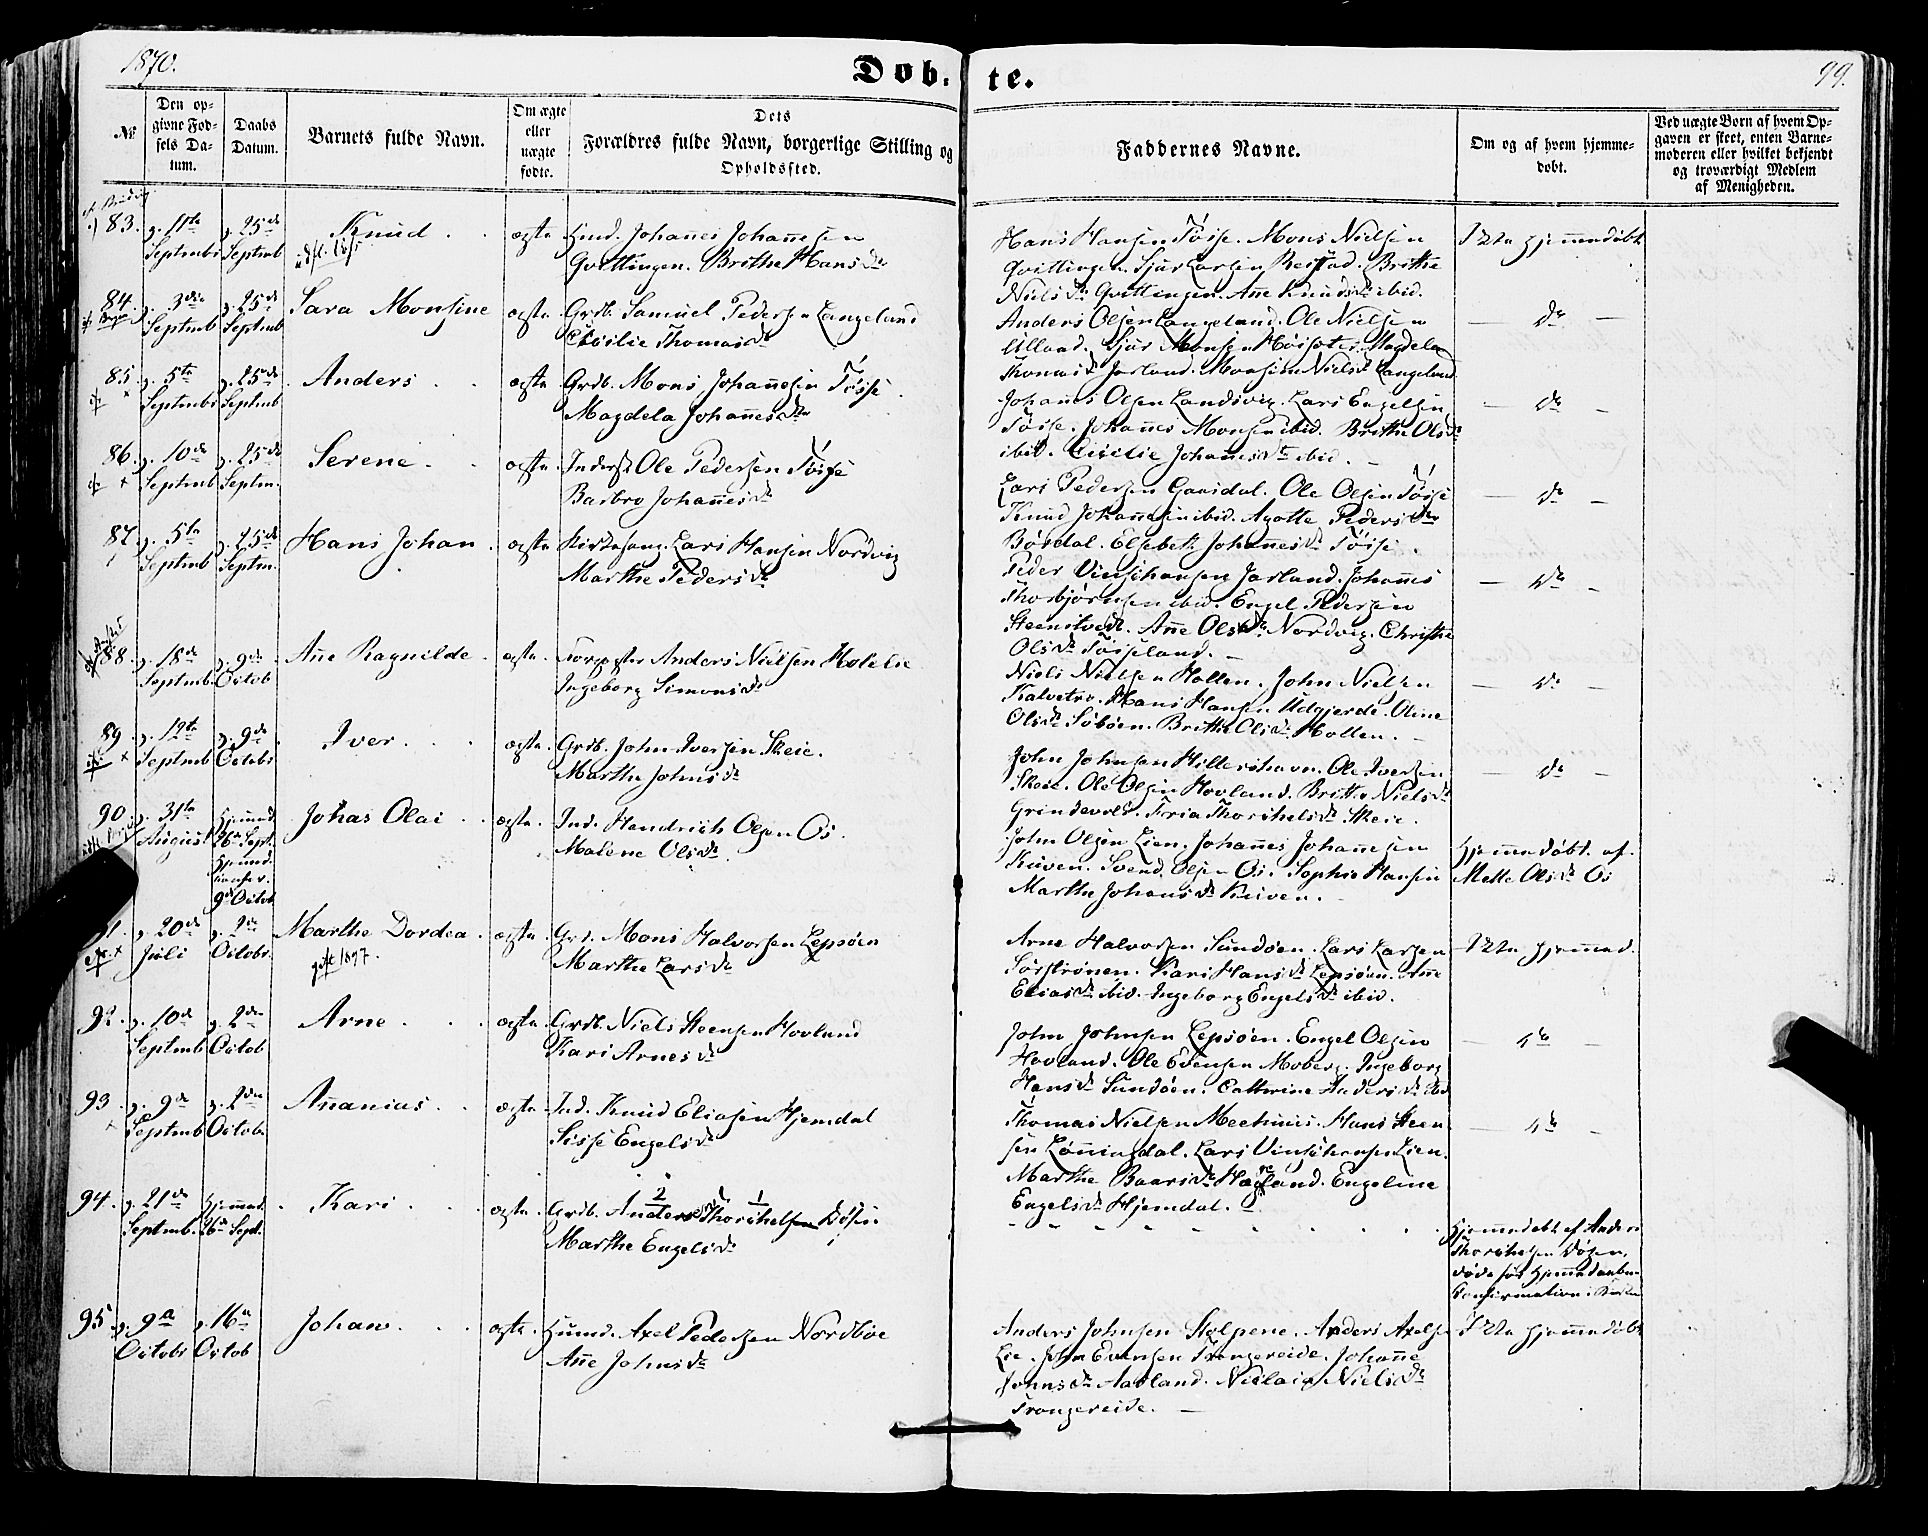 1870.
Dob. te.
99.
№
Den opgivne Fødsels Datum.
Daabs Datum.
Barnets fulde Navn.
Om ægte eller uægte fødte.
Dets Forældres fulde Navn, borgerlige Stilling og Opholdssted.
Faddernes Navne.
Om og af hvem hjemmedøbt.
Ved uægte Børn af hvem Opgaven er skeet, enten Barnemoderen eller hvilket bekjendt og troværdigt Medlem af Menigheden.
83. 11te Septembr 25de Septemb Knud ægte Huusm. Johannes Johannesen
Qvittingen. Brithe Hansdr
Hans Hansen Tøsse. Mons Nielsen
Qvittingen. Sjur Larsen Reistad. Brithe
Nielsdr Qvittingen. Ane Knudsdr ibid.
Ikke hjemmedøbt
84 3die Septemb 25de Septemb Sara Monsine ægte Grdb. Samuel Pedersen Langeland
Cecilie Thomasdr
Anders Olsen Langeland. Ole Nielsen
Ulland. Sjur Monsen Høisæter. Magdela
Thomasdr Jarland. Monsine Nielsdr Langeland
— do —
85 5te Septembr 25de Septemb Anders ægte Grdb. Mons Johannesen Tøsse
Magdela Johannesdr
Johannes Olsen Landsvig. Lars Engelsen
Tøsse. Johannes Monsen ibid. Brithe Olsdr
ibid. Cicilie Johannesdr ibid.
— do —
86. 10de Septemb 25de Septm. Serene ægte Inderst Ole Pedersen Tøsse
Barbro Johannesdr
Lars Pedersen Gaasdal. Ole Olsen Tøsse
Knud Johannesen ibid. Agathe Pedersdr
Børdal. Elsebeth Johannesdr Tøsse.
— do —
87 5te Septemb 25de Septm. Hans Johan ægte Kirkesang. Lars Hansen Nordvig
Marthe Pedersdr
Peder Vinschansen Jarland. Johannes
Thorbjørnsen ibid. Engel Pedersen
Steenstvedt. Ane Olsdr Nordvig. Christie
Olsdr Tøsseland.
— do —
88. 18de Septemb. 9de Octob Ane Ragnilde ægte Anders Nielsen Kolelie
Ingeborg Simonsdr
Niels Nielsen Hollen. John Nielsen
Kalvetræ. Hans Hansen Udgjerde. Oline
Olsdr Søbøen. Brithe Olsdr Hollen.
— do —
89 12te Septemb 9de Octobr Iver ægte Grdb. John Iversen Skeie.
Marthe Johnsdr
John Johnsen Hilleshavn. Ole Iversen
Skeie. Ole Olsen Hovland. Britha Nielsdr
Grindevold. Thorkelsdr Skeie.
— do —
90 31te August Hjemmd. Sept. 9de Octob Johas Olai ægte Ind. Hendrich Olsen Os.
Malene Olsdr.
John Olsen Lien. Johannes Johannesen
Kuven. Svend Olsen Os. Sophie Hansen
Marthe Johansdr Kuven.
Hjemmedøbt af
Mette Olsdr Os
91. 20de Juli 2den Octobr. Marthe Dordea
gift 1897.
ægte Grd. Mons Halvorsen Lepsøen
Marthe Larsdr
Arne Halvorsen Sundøen. Lars Larsen
Sørstrønen. Kari Hansdr Lepsøen. Ane
Eliasdr ibid. Ingeborg Engelsdr ibid.
Ikke hjemmed.
92. 10de Septemb 2den Octob Arne ægte Grdb. Niels Steensen Hovland
Kari Arnesdr
John Johnsen Lepsøen. Engel Olsen
Hovland. Ole Evensen Moberg. Ingeborg
Hansdr Sundøen. Cathrine Andersdr ibid
— do —
93 9de Septemb 2den Octob. Ananias ægte Ind. Knud Eliasen Hjemdal
Sisse Engelsdr
Thomas Nielsen Meehuus. Hans Steensen Lønningdal. Lars Vinschansen Lien.
Marthe Baarsdr Hagland. Engeline
Engelsdr Hjemdal.
— do —
94. 21de Septmb. Hjemmed. 26de Sept. Kari ægte Grdb. Anders Thorkelsen Døsen
Marthe Engelsdr
Hjemmedøbt af Anders
Thorkelsen Døsen,
døde før Hjemmedaabens
Confirmation i Kirken
95 9de Octobr 16de Octob Johan ægte Huusm. Axel Pedersen Nordbøe
Ane Johnsdr
Anders Johnsen Stolpene. Anders Axelsen
Lie. John Evensen Trengereide. Johanne
Johnsdr Aadland. Nicolai Nielsdr
Trongereide.
Ikke hjemmedøbt